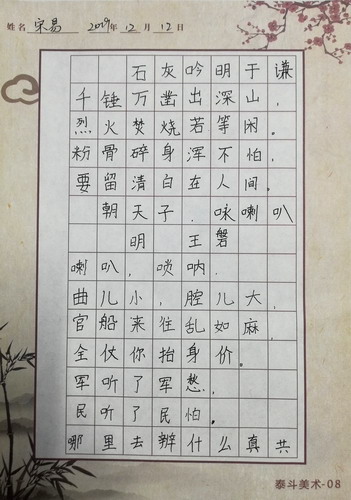 姓名 宋易 2019年 12月 12日
石灰吟明于谦
千锤万凿出深山，
烈火焚烧若等闲。
粉骨碎身浑不怕，
要留清白在人间。
朝天子．咏喇叭
明 王磐
喇叭，唢呐，
曲儿小，腔儿大，
官船来往乱如麻，
全仗你抬身价。
军听了军愁，
民听了民怕。
哪里去辨什么真共
泰斗美术-08